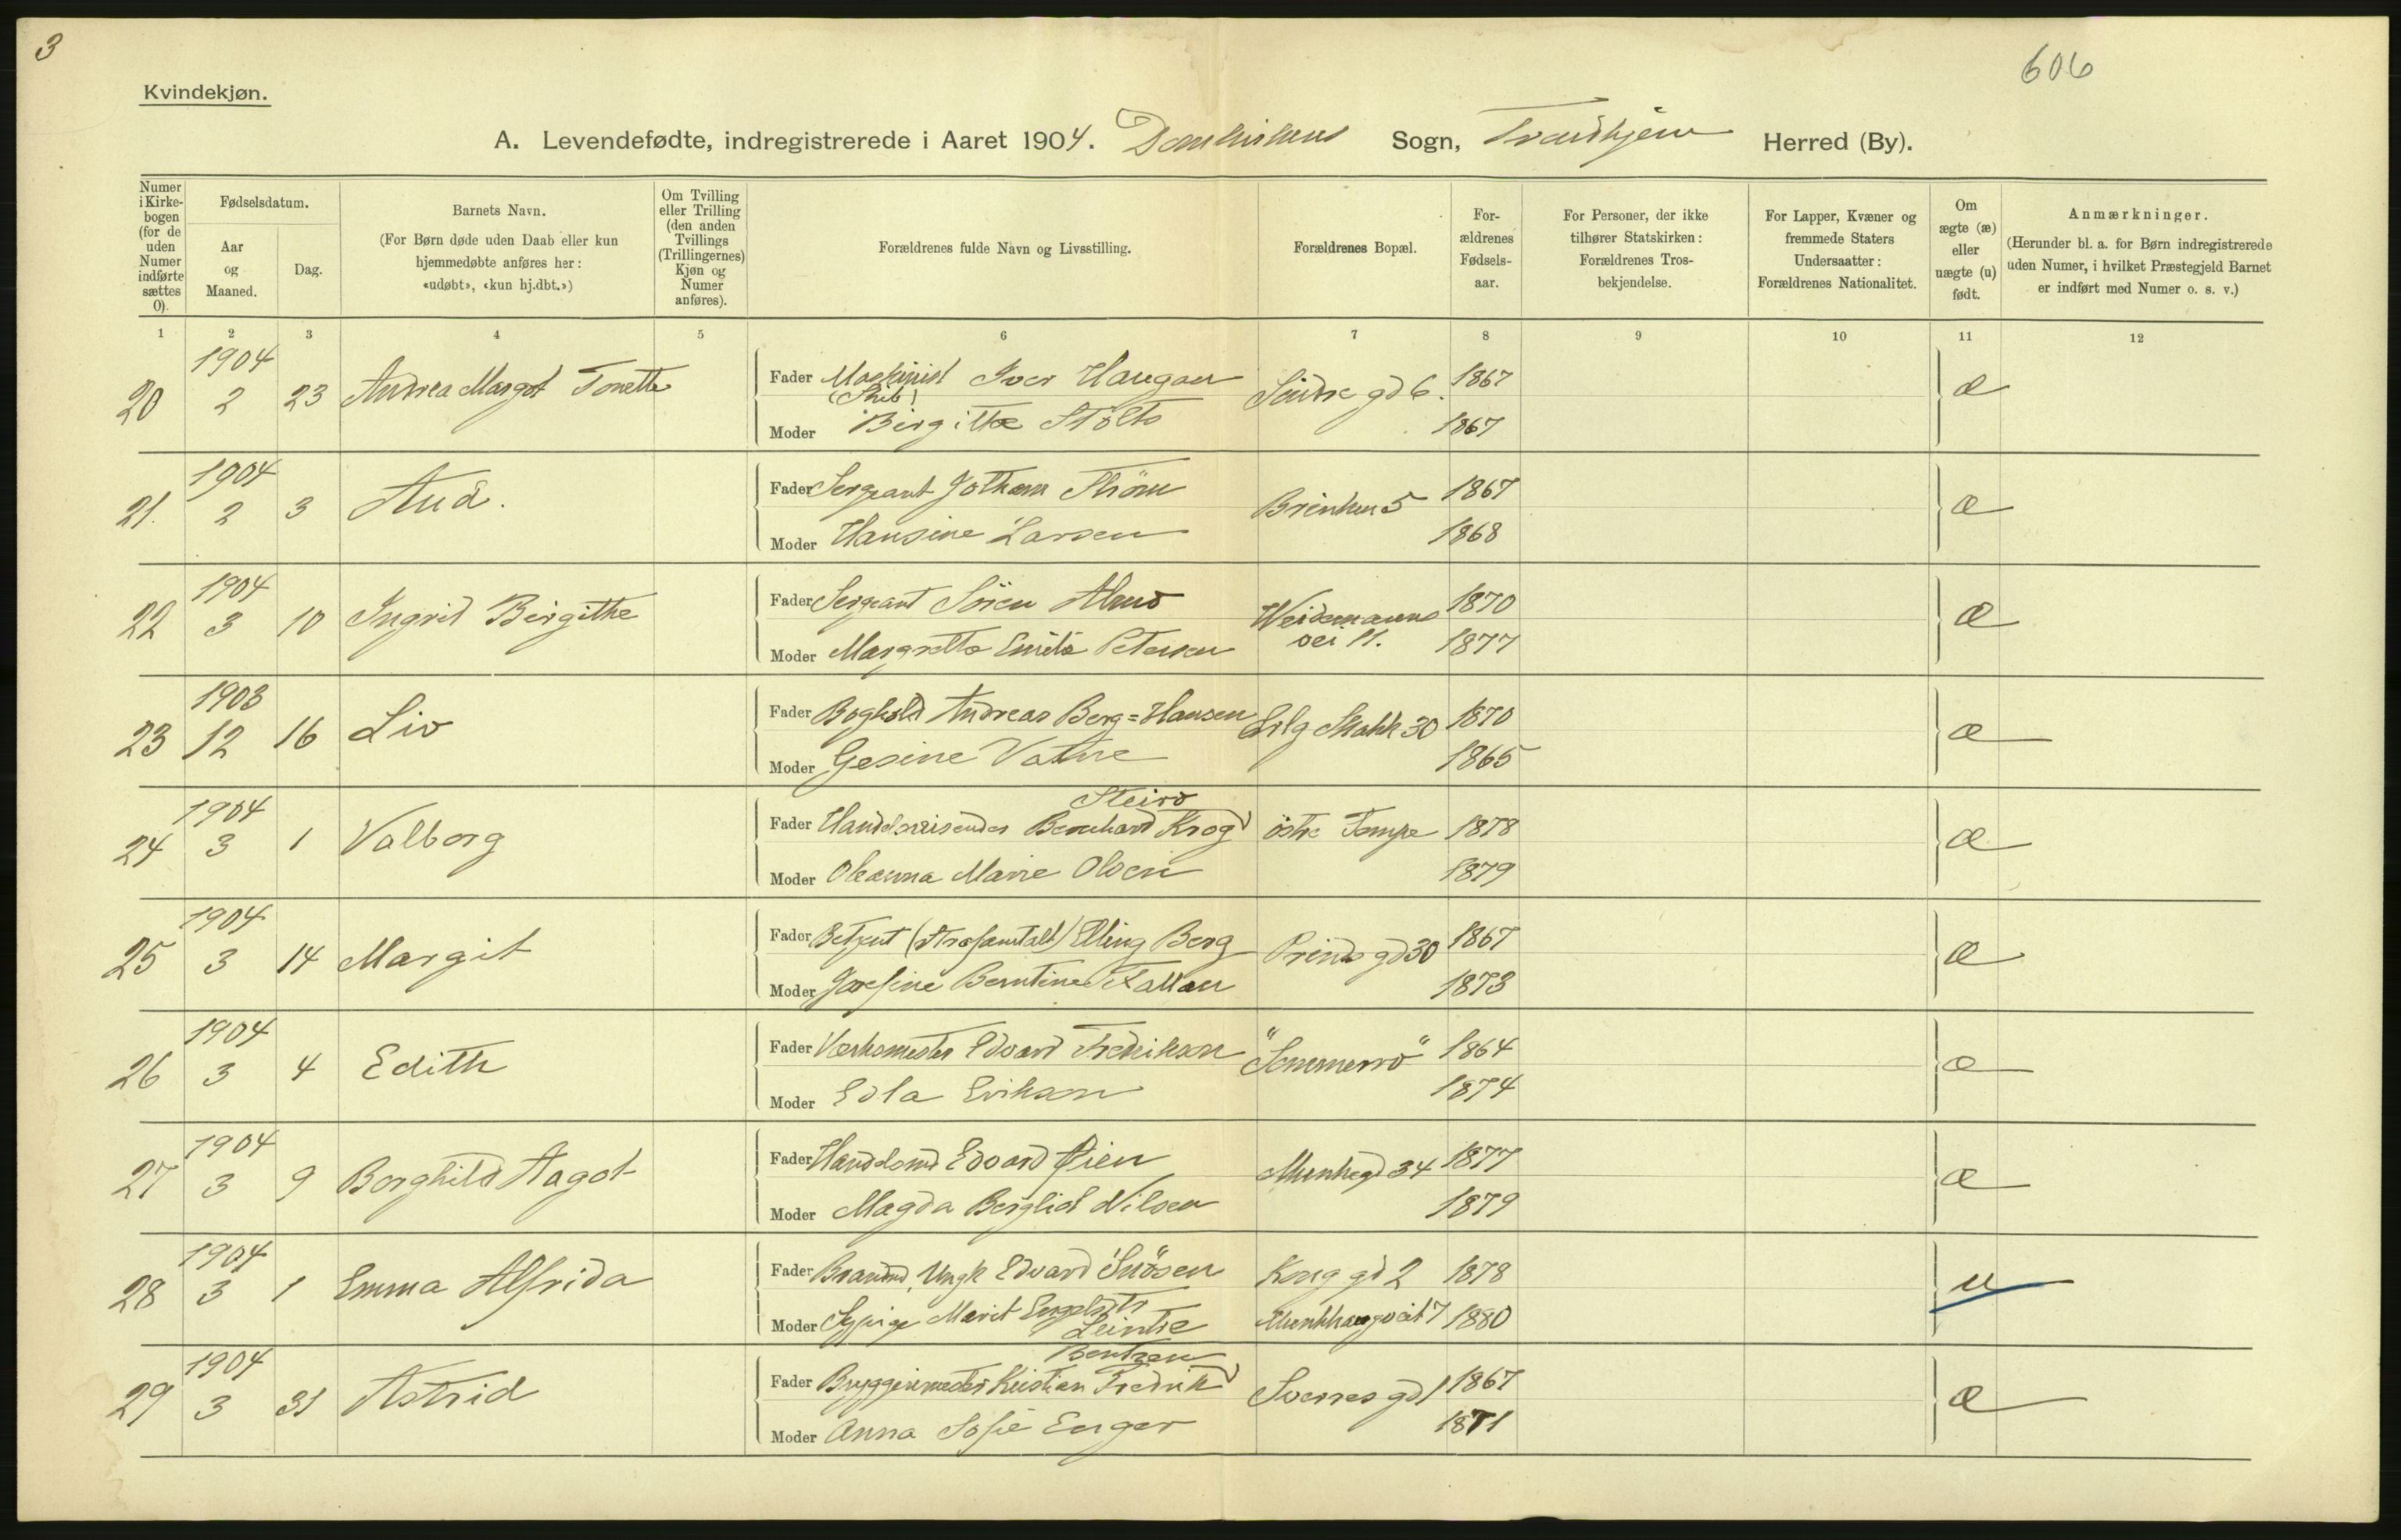 3
606
Kvindekjøn.
A. Levendefødte, indregistrerede i Aaret 1904. Domkirkens Sogn, Trondhjem Herred (By).
Numer i Kirkebogen (for de uden Numer indførte sættes 0).
Fødselsdatum.
Aar og Maaned.
Dag.
Barnets Navn.
(For Børn døde uden Daab eller kun hjemmedøbte anføres her: «udøbt», «kun hj.dbt.»)
Om Tvilling eller Trilling (den anden Tvillings (Trillingernes) Kjøn og Numer anføres).
Forældrenes fulde Navn og Livsstilling.
Forældrenes Bopæl.
Forældrenes Fødselsaar.
For Personer, der ikke tilhører Statskirken: Forældrenes Trosbekjendelse.
For Lapper, Kvæner og fremmede Staters Undersaatter: Forældrenes Nationalitet.
Om ægte (æ) eller uægte (u) født.
Anmærkninger.
(Herunder bl. a. for Børn indregistrerede uden Numer, i hvilket Præstegjeld Barnet er indført med Numer o. s. v.)
1 2 3 4 5 6 7 8 9 10 11 12
20 1904 2 23 Andrea Margot Tonette Fader Maskinist (Skib) Iver Haugan Søndre gd 6. 1867 æ
Moder Birgitte Stölto 1867
21. 1904 2 3 Aud. Fader Sergeant Jotham Ström Brinken 5 1867 æ
Moder Hansine Larsen 1868
22 1904 3 10 Ingrid Birgithe Fader Sergeant Sören Weidemanns vei 11. 1870 æ
Moder Margrethe Emilie Petersen 1877
23 1903 12 16 Liv Fader Boghold Andreas Berg=Hansen 30 1870 æ
Moder Gesine Vatne 1865
24 1904 3 1 Valborg Fader Handelsreisendes Bernhard Krog Steiro östre Tempe 1878 æ
Moder Oleanna Marie Olsen 1879
25 1904 3 14 Margit Fader Betjent (Strafanstalt) Elling Berg Prinds gd 30 1867 æ
Moder Josefine Berntine Fallan 1873
26 1904 3 4 Edith Fader Værksmester Edvard Fredrikson "Sommerro" 1864 æ
Moder Edla Erikson 1874
27 1904 3 9 Borghild Aagot Fader Handelsmd Edvard Øien Munkegd 34 1877 æ
Moder Magda Bergliot Nilsen 1879
28 1904 3 1 Emma Alfrida Fader Brandmd, Ungk Edvard Snösen Kong gd 2 1878 u
Moder Sypige Marit Leintre 7 1880
29 1904 3 31 Astrid Fader Bryggerimester Kristian Fredrik Bentzen Sverres gd 1 1867 æ
Moder Anna Sofie Enger 1871